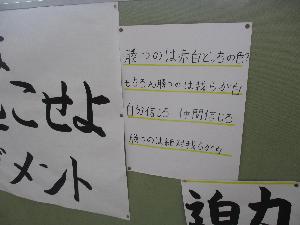 こせよ
メント
勝つのは赤白どっちの色?
もちろん勝つのは我らが白
自分信じろ 仲間信じろ
勝つのは絶対我らが白
迫力